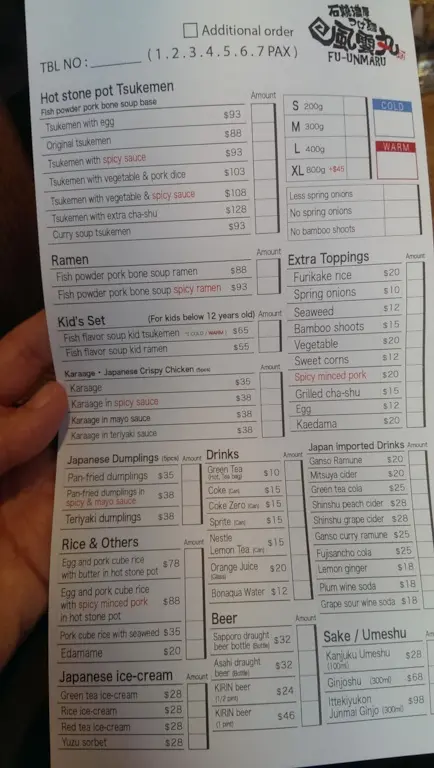 石焼濃厚
つけ麺
風雲丸
FU-UNMARU
Additional order
TBL NO : ( 1 . 2 . 3 . 4 . 5 . 6 . 7 PAX )
Hot stone pot Tsukemen
Fish powder pork bone soup base
Amount
Tsukemen with egg $93
Original tsukemen $88
Tsukemen with spicy sauce $93
Tsukemen with vegetable & pork dice $103
Tsukemen with vegetable & spicy sauce $108
Tsukemen with extra cha-shu $128
Curry soup tsukemen $93
S 200g
M 300g
L 400g
XL 800g +$45
COLD
WARM
Less spring onions
No spring onions
No bamboo shoots
Ramen Amount
Fish powder pork bone soup ramen $88
Fish powder pork bone soup spicy ramen $93
Kid's Set (For kids below 12 years old) Amount
Fish flavor soup kid tsukemen *( COLD / WARM ) $65
Fish flavor soup kid ramen $55
Karaage・Japanese Crispy Chicken Amount
Karaage $35
Karaage in spicy sauce $38
Karaage in mayo sauce $38
Karaage in teriyaki sauce $38
Extra Toppings Amount
Furikake rice $20
Spring onions $10
Seaweed $12
Bamboo shoots $15
Vegetable $20
Sweet corns $12
Spicy minced pork $20
Grilled cha-shu $15
Egg $12
Kaedama $20
Japanese Dumplings (5pics) Amount
Pan-fried dumplings $35
Pan-fried dumplings in
spicy & mayo sauce $38
Teriyaki dumplings $38
Rice & Others Amount
Egg and pork cube rice
with butter in hot stone pot $78
Egg and pork cube rice
with spicy minced pork
in hot stone pot $88
Pork cube rice with seaweed $35
Edamame $20
Japanese ice-cream Amount
Green tea ice-cream $28
Rice ice-cream $28
Red tea ice-cream $28
Yuzu sorbet $28
Drinks Amount
Green Tea
(Hot, Tea bag) $10
Coke (Can) $15
Coke Zero (Can) $15
Sprite (Can) $15
Nestle
Lemon Tea (Can) $15
Orange Juice
(Glass) $20
Bonaqua Water $12
Beer Amount
Sapporo draught
beer bottle (Bottle) $32
Asahi draught
beer (Bottle) $32
KIRIN beer
(1/2 pint) $24
KIRIN beer
(1 pint) $46
Japan Imported Drinks Amount
Ganso Ramune $20
Mitsuya cider $20
Green tea cola $25
Shinshu peach cider $28
Shinshu grape cider $28
Ganso curry ramune $25
Fujisancho cola $25
Lemon ginger $18
Plum wine soda $18
Grape sour wine soda $18
Sake / Umeshu Amount
Kanjuku Umeshu
(100ml) $28
Ginjoshu (300ml) $68
Ittekiyukon
Junmai Ginjo (300ml) $98